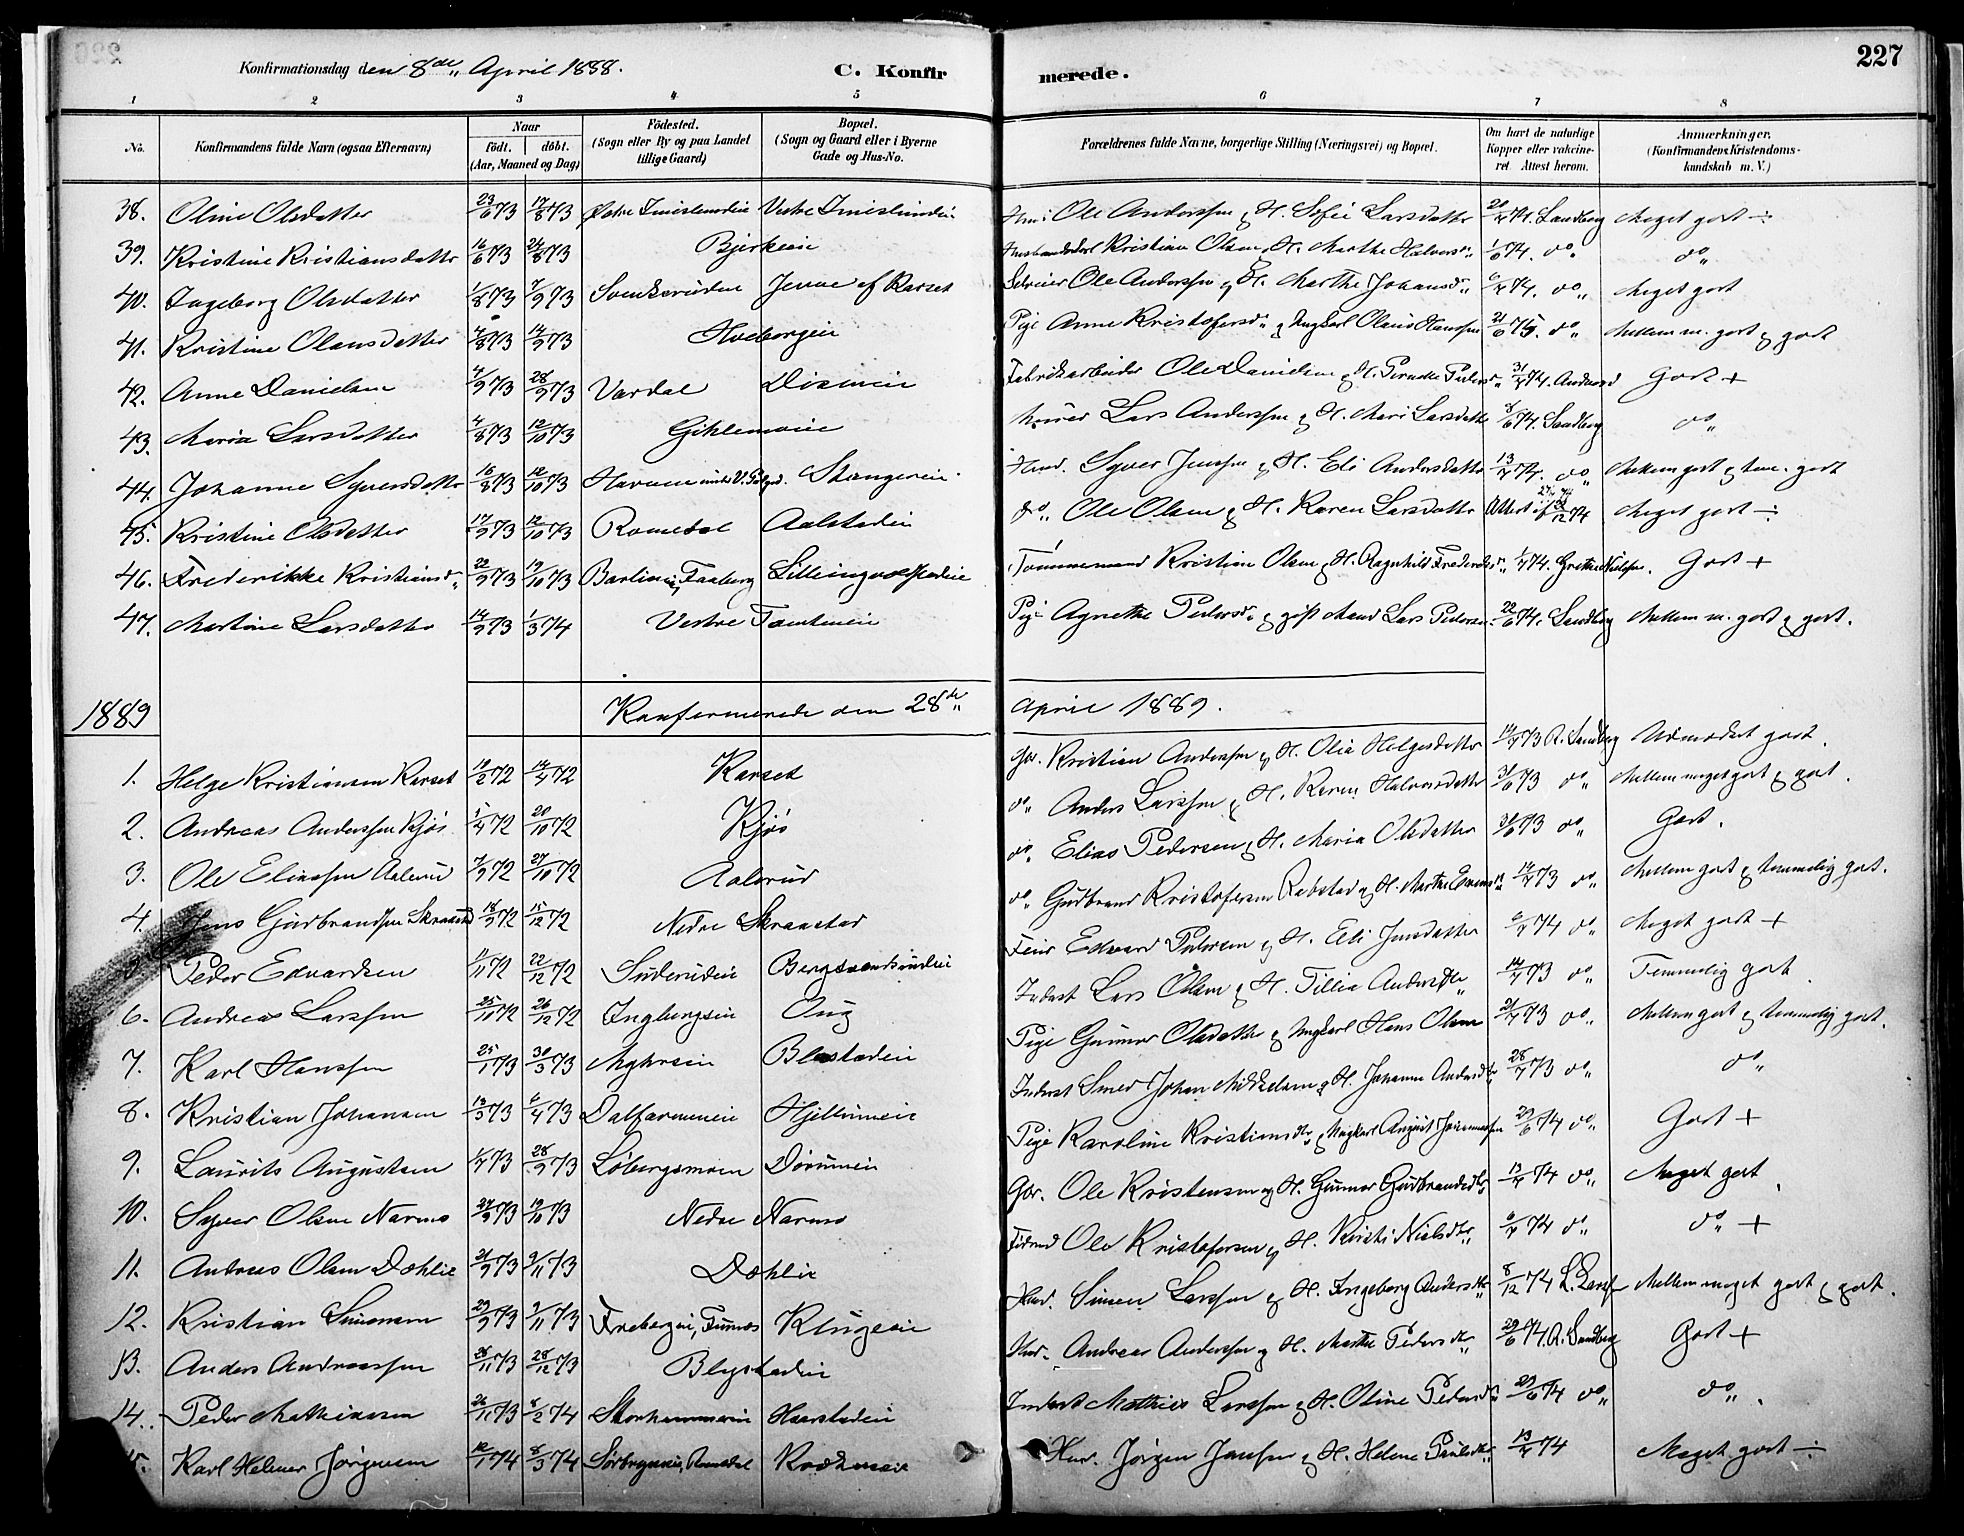 227
Konfirmationsdag den 8de April 1888.
C. Konfirmerede.
1 2 3 4 5 6 7 8
No. Konfirmandens fulde Navn (ogsaa Efternavn) Naar födt. döbt. (Aar, Maaned og Dag) Födested. (Sogn eller By og paa Landet tillige Gaard) Bopæl. (Sogn og Gaard eller i Byerne Gade og Hus-No. Forældrenes fulde Navne, borgerlige Stilling (Næringsvei) og Bopæl. Om havt de naturlige Kopper eller vakcineret Attest herom. Anmærkninger. (Konfirmandens Kristendomskundskab m. V.)
38. Oline Olsdatter 23/6 73 17/8 73 Østre Vestre Ole Anderssen & H. Sofie Larsdatter 20/7 74. Sandberg Meget godt ÷
39. Kristine Kristiansdatter 16/6 73 24/8 73 Bjerkeeie Kristian Olsen, H. Marthe Halvorsd. 1/6 74. do do
40. Ingeborg Olsdatter 1/8 73 7/9 73 af Karset Selveier Ole Anderssen & H. Marthe Johansd. 6/7 74. do Meget godt
41. Kristine Olausdatter 4/8 73 14/9 73 Hveborgeie Pige Anne Kristofersd. & Ungkarl Olaus Hanssen 21/6 75. do Mellem m. godt & godt
42. Anne Danielsen 4/9 73 28/9 73 Vardal Disеneie Fabrikarbeider Ole Danielsen & H. Pernille Pedersd. 31/7 74. Godt +
43. Maria Larsdatter 4/8 73 12/10 73 Gihlemoeie Murer Lars Anderssen & H. Mari Larsdatter 6/6 74. Sandberg do
44. Johanne Syversdatter 16/8 73 12/10 73 Stangeeie Husm. Syver Jenssen & H. Eli Andersdatter 13/7 74. do Mellem godt & tem. godt
45. Kristine Olsdatter 17/9 73 12/10 73 Romedal Aalstadeie do Ole Olsen & H. Karen Larsdatter Attest af 12 74 Meget godt ÷
46. Frederikke Kristiansd. 22/9 73 19/10 73 Faaberg Tømmermand Kristian Olsen & H. Ragnhild Frederiksd. 1/7 74. Grethe Nielsen. Godt +
47. Martine Larsdatter 14/9 73 1/3 74 Vestre Tomteeie Pige Agnethe Pedersd. & gift Mand Lars Pedersen 22/6 74. Sandberg Mellem m. godt & godt.
1889 Konfirmerede den 28de April 1889.
1. Helge Kristiansen Karset 19/2 72 14/4 72 Karset Gbr. Kristian Anderssen & H. Olia Helgesdatter 14/7 73 A. Sandberg Udmærket godt.
2. Andreas Anderssen Kjøs 5/4 72 20/10 72 Kjøs do Anders Larssen & H. Karen Halvorsdatter 3/6 73 do Mellem meget godt & godt.
3. Ole Eliassen Aalerud 7/9 72 27/10 72 Aalerud do Elias Pedersen & H. Maria Olsdatter 31/6 73 do Godt.
4. Jens Gudbrandsen Skraastad 18/9 72 15/12 72 Nedre Skraastad do Gudbrand Kristofersen Rebstad & H. Marthe 14/7 73 do Mellem godt & temmelig godt.
5. Peder Edvardsen 11/11 72 22/12 72 Suderudeie Feier Edvard Pedersen & H. Eli Jensdatter 6/7 74 do Meget godt +
6. Andreas Larssen 25/10 72 26/12 72 Ingbergseie Aug Inderst Lars Olsen & H. Tillia Andersdtr 14/7 73 do Temmelig godt
7. Karl Hanssen 25/1 73 30/3 73 Myhreeie Blestadeie Pige Gunnor Olsdatter & Ungkarl Hans Olsen 21/7 73 do Mellem godt & temmelig godt.
8. Kristian Johansen 13/3 73 6/4 73 Dalfarmeneie Hjellumeie Inderst Smed Johan Mikkelsen & H. Johanne Andersdtr 28/7 73 do do
9. Laurits Augustsen 1/7 73 28/9 73 Løbergsmoen Dørumeie Pige Karoline Kristiansdtr & Ungkarl August Johannessen 29/6 74 do Godt +
10. Syver Olsen Narmo 27/9 73 19/10 73 Nedre Narmo Gbr. Ole Kristensen & H. Gunnor Gudbrandsdtr 13/7 74 do Meget godt
11. Andreas Olsen Dæhlie 21/9 73 9/11 73 Dæhlie Ole Kristofersen & H. Kristi Nielsdtr 6/7 74 do do +
12. Kristian Simensen 29/9 73 9/11 73 Furnæs Klugeeie Husm. Simen Larssen & H. Ingeborg Andersdtr 8/12 74 L. Larssen Mellem meget godt & godt.
13. Anders Andreassen 26/11 73 28/12 73 Blystadeie Husm. Andreas Anderssen & H. Marthe Pedersdtr 29/6 74. A. Sandberg Godt +
14. Peder Mathiassen 26/11 73 8/2 74 Storhammereie Haarstadeie Inderst Mathias Larssen & H. Oline Pedersdtr 29/6 74 do do
15. Karl Helmer Jørgensen 12/1 74 8/3 74 Romedal Husm. Jørgen Jenssen & H. Helene Paulsdtr 13/7 74 Meget godt ÷